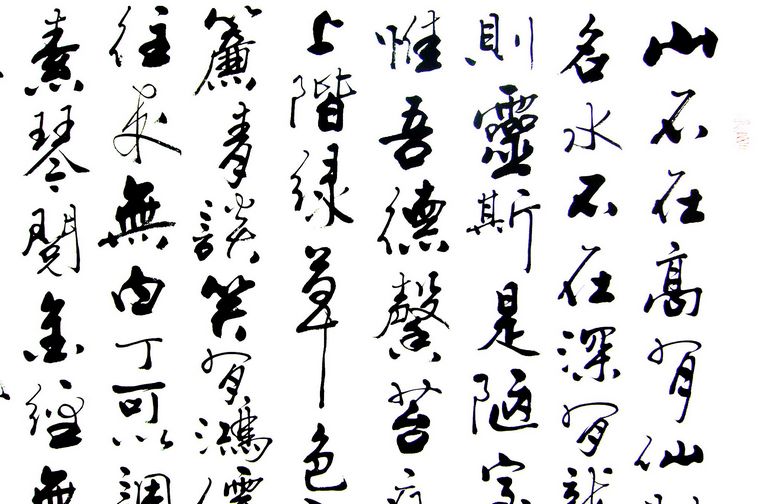 山不在高有仙
名水不在深有龍
則靈斯是陋室
惟吾德馨苔痕
上階綠草色
簾青談笑有鴻儒
往來無白丁可以調
素琴閱金經無